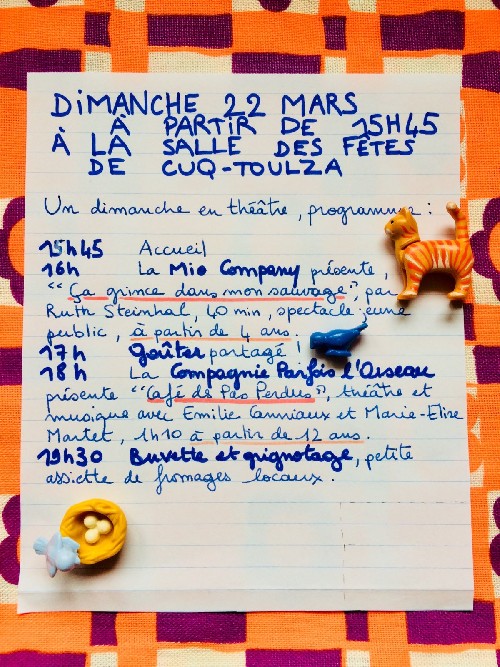 DiMANCHE 22 MARS
À PARTIR DE 15H45
À LA SALLE DES FÊTES
DE CUQ-TOULZA
Un dimanche en théâtre, programme :
15h45 Accueil
16h La Mio Company présente,
"Ça grince dans mon sauvage", par
Ruth Steinhal, 40 min, spectacle jeune
public, à partir de 4 ans.
17h Goûter partagé !
18h La Compagnie Parfois l'Oiseau
présente "Café des Pas Perdus", théâtre et
musique avec Emilie Canniaux et Marie-Elise
Martet, 1h10 à partir de 12 ans.
19h30 Buvette et grignotage, petite
assiette de fromages locaux.